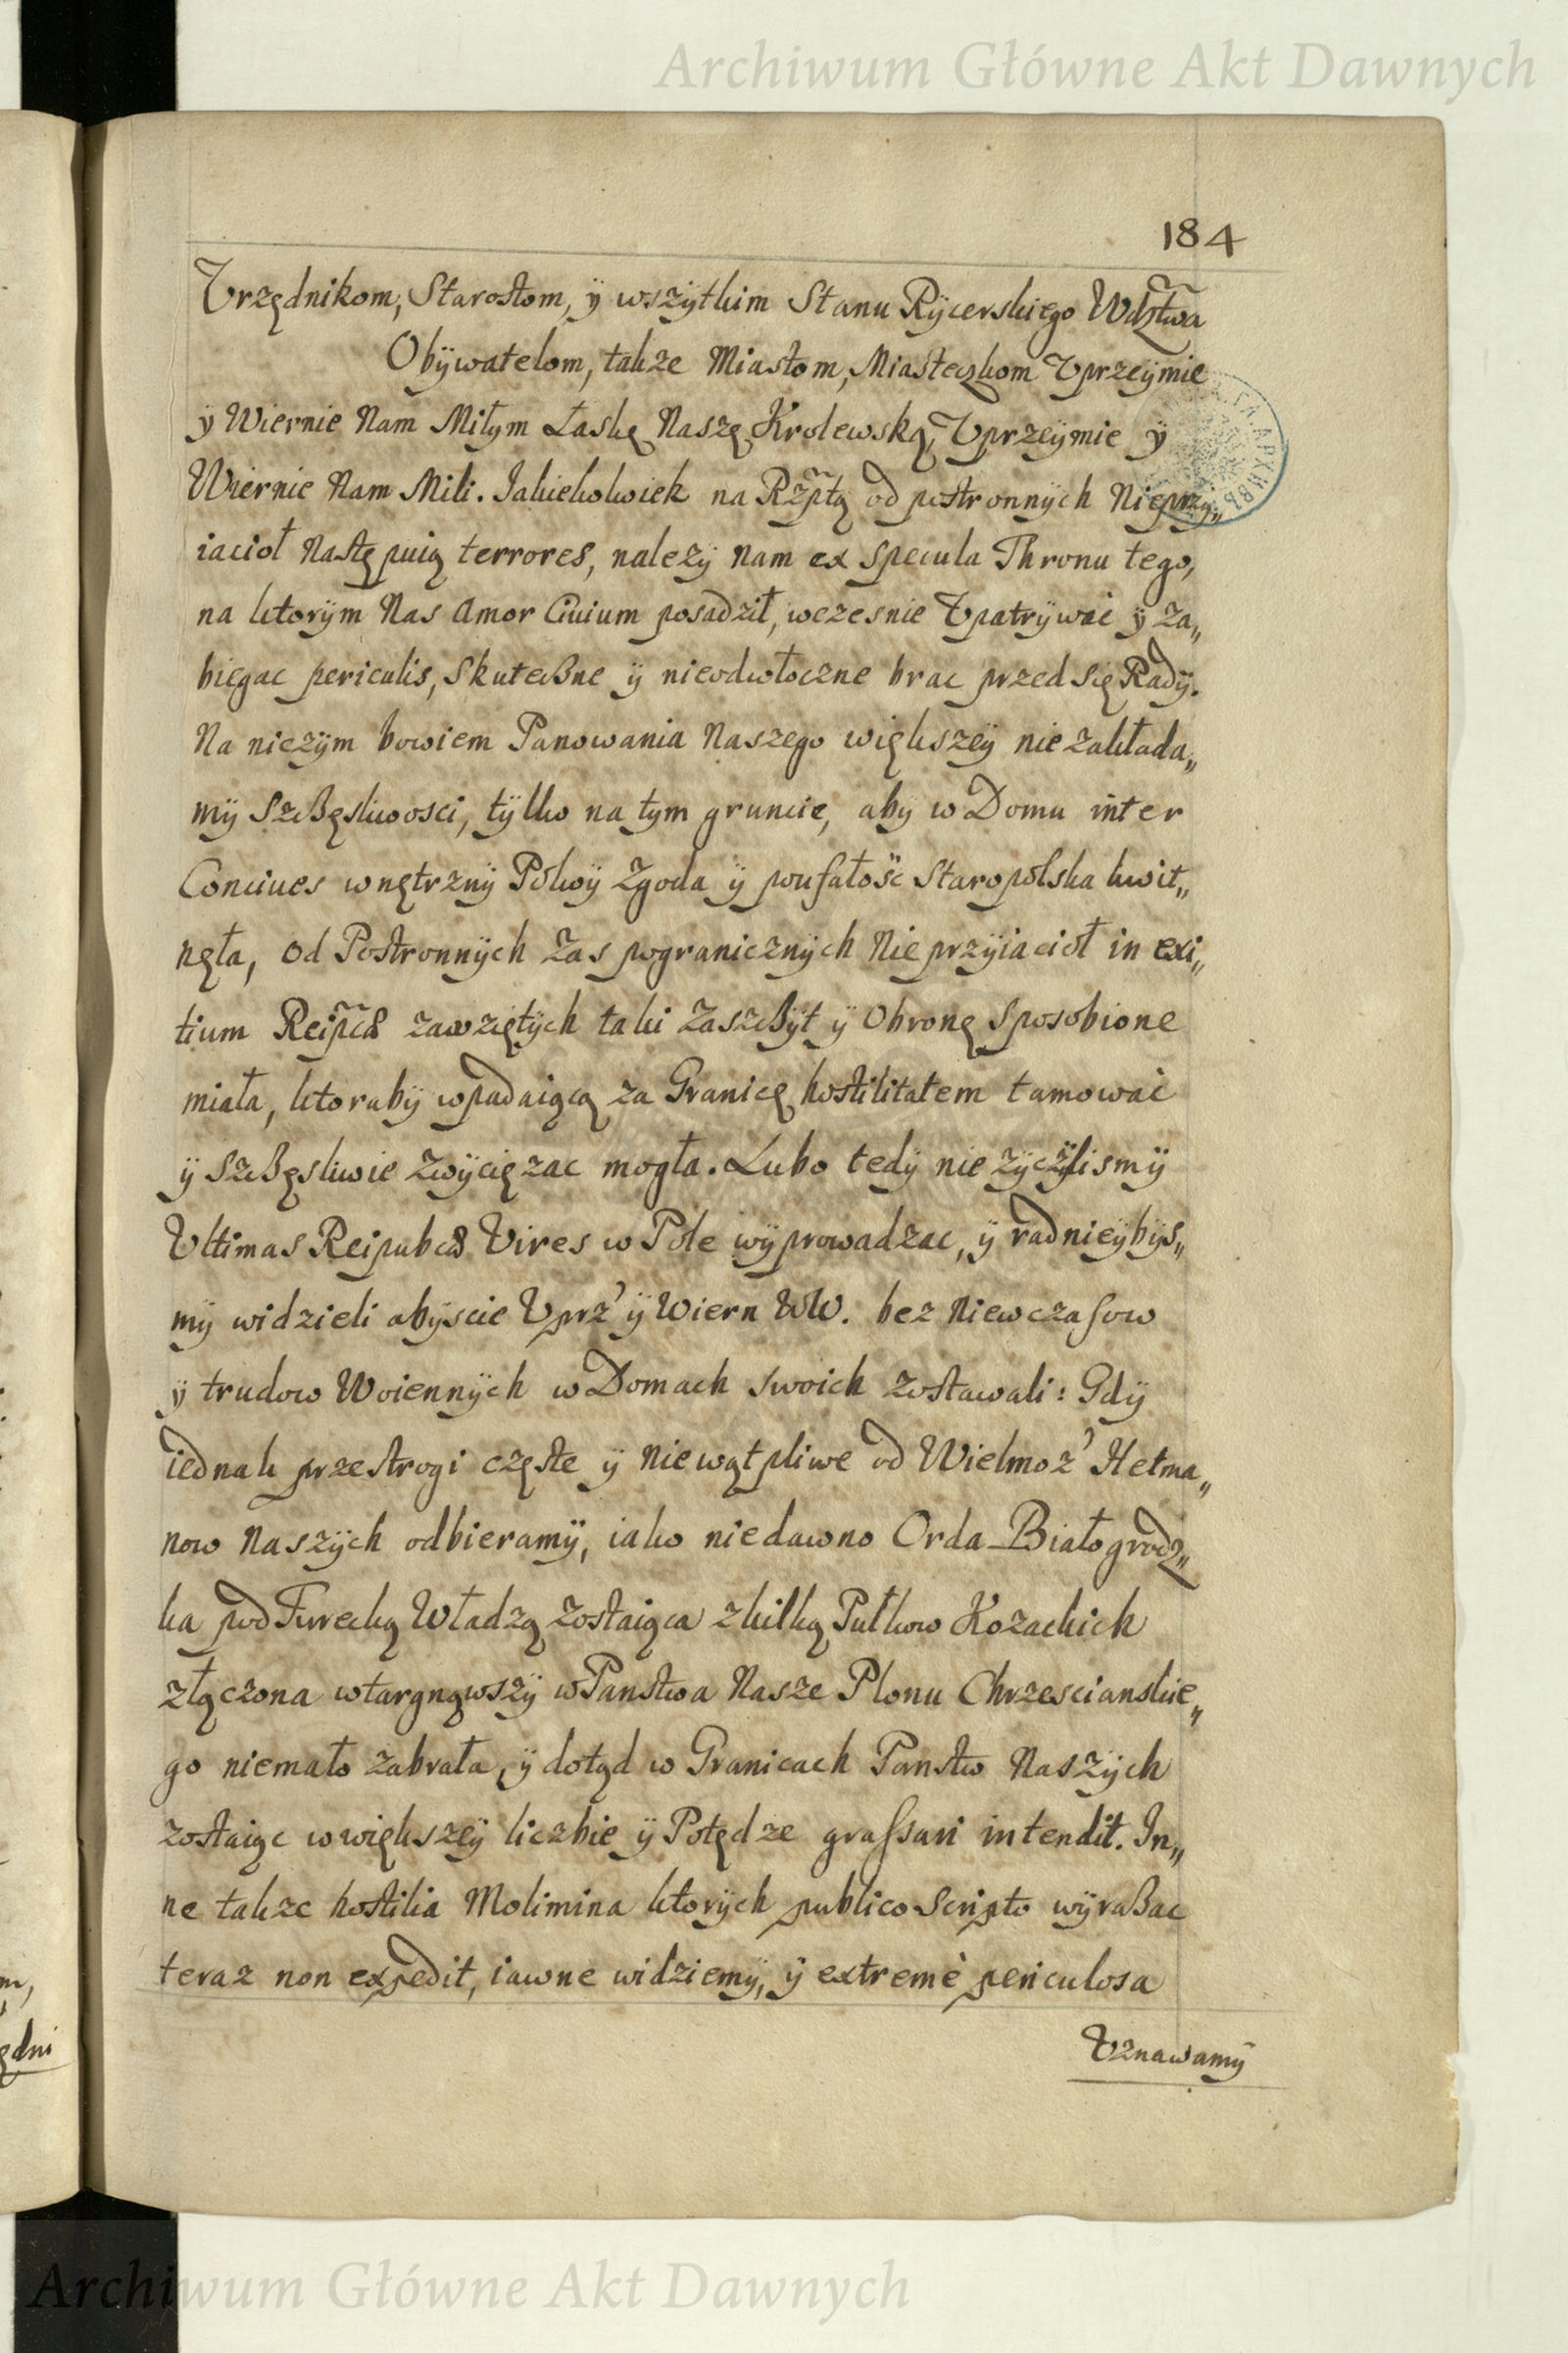 Archiwum Główne Akt Dawnych
184
Vrzędnikom, Starostom, ÿ wszÿtkim Stanu Rÿcerskiego Wdztwa
Obÿwatelom, także Miastom, Miasteczkom Vprzeÿmie
ÿ Wiernie Nam Miłym Łaskę Naszę Krolewską, Vprzeÿmie ÿ
Wiernie Nam Mili. Jakiekolwiek na Rzptą od postronnÿch Nieprzÿ„
iacioł Nastę puią terrores, nalezÿ Nam ex specula Thronu tego,
na ktorÿm Nas Amor Civium posadził, wczesnie Vpatrÿwać ÿ Za„
biegac periculis, Skuteczne ÿ nieodwłoczne brac przed się Radÿ.
Na niczÿm bowiem Panowania Naszego większeÿ nie zakłada„
mÿ Szczęsliwosci, tÿlko na tym gruncie, abÿ w Domu inter
Conciues wnętrznÿ Pokoÿ Zgoda ÿ poufałość Staropolska kwit„
nęła, od Postronnÿch Zas pogranicznÿch Nieprzÿiacioł in exi„
tium Reipcæ zawziętÿch taki Zaszczÿt ÿ Obronę Sposobione
miała, ktorabÿ wpadaiącą za Granicę hostilitatem tamować
ÿ Szczęsliwie Zwÿcięzac mogła. Lubo tedÿ nie zÿczÿlismÿ
Vltimas Reipubcæ Vires w Pole wÿprowadzac, ÿ radnieÿbÿs„
mÿ widzieli abÿscie Vprz' ÿ Wiern WW. bez Niewczasow
ÿ trudow Woiennÿch w Domach swoich zostawali: Gdÿ
iednak przestrogi częste ÿ Niewątpliwe od Wielmoz' Hetma„
now Naszÿch odbieramÿ, iako niedawno Orda Białogrodz„
ka pod Turecką Władzą Zostaiąca z kilką Pułkow Kozackich
złączona wtargnąwszÿ w Panstwa Nasze Plonu Chrzescianskie„
go niemało zabrała, ÿ dotąd w Granicach Panstw Naszÿch
zostaiąc w większeÿ liczbie ÿ Potędze grassari intendit. In„
ne takze hostilia Molimina ktorÿch publico Scripto wÿrażac
teraz non expedit, iawne widziemÿ, ÿ extremè periculosa
Vznawamÿ
Archiwum Główne Akt Dawnych